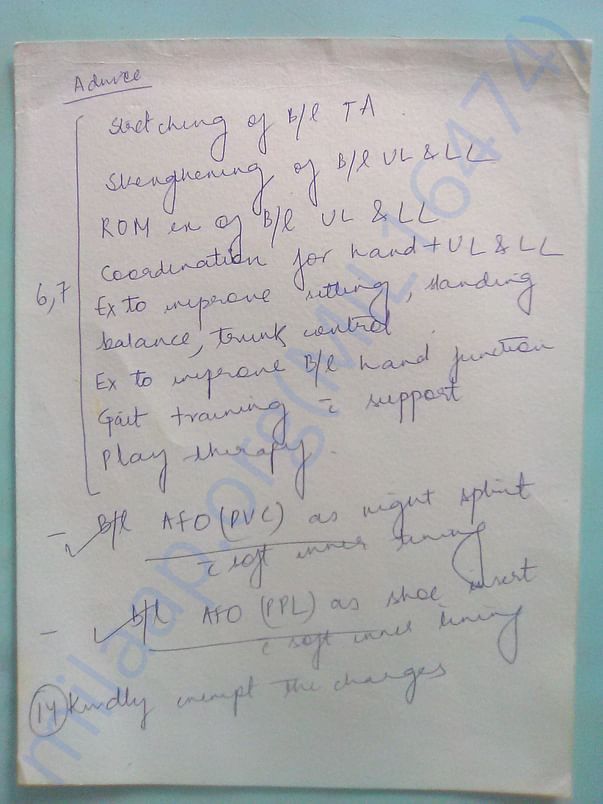 Advice
Stretching of B/l TA
Strengthening of B/l UL & LL
ROM ex of B/l UL & LL
Coordination for hand + UL & LL
6,7
Ex to improve sitting, standing
balance, trunk control
Ex to improve B/l hand function
Gait training c̄ support
Play therapy.
- ✓ B/l AFO (PVC) as night splint
c̄ soft inner lining
- ✓ B/l AFO (PPL) as shoe insert
c̄ soft inner lining
14 Kindly exempt the charges
milaap.org(MIL16474)